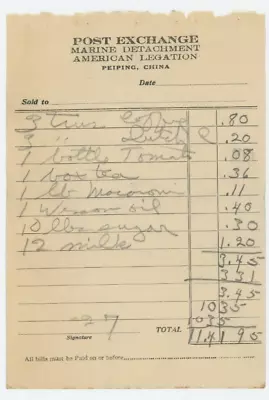 POST EXCHANGE
MARINE DETACHMENT
AMERICAN LEGATION
PEIPING, CHINA
Date
Sold to
3 Tins .80
3 " Dutch C .20
1 bottle Tomato .08
1 box tea .36
1 lb Macaroni .11
1 Wesson oil .40
10 lbs sugar .30
12 milk 1.20
3.45
331
3.45
1035
27 1035
Signature TOTAL 14195
All bills must be Paid on or before